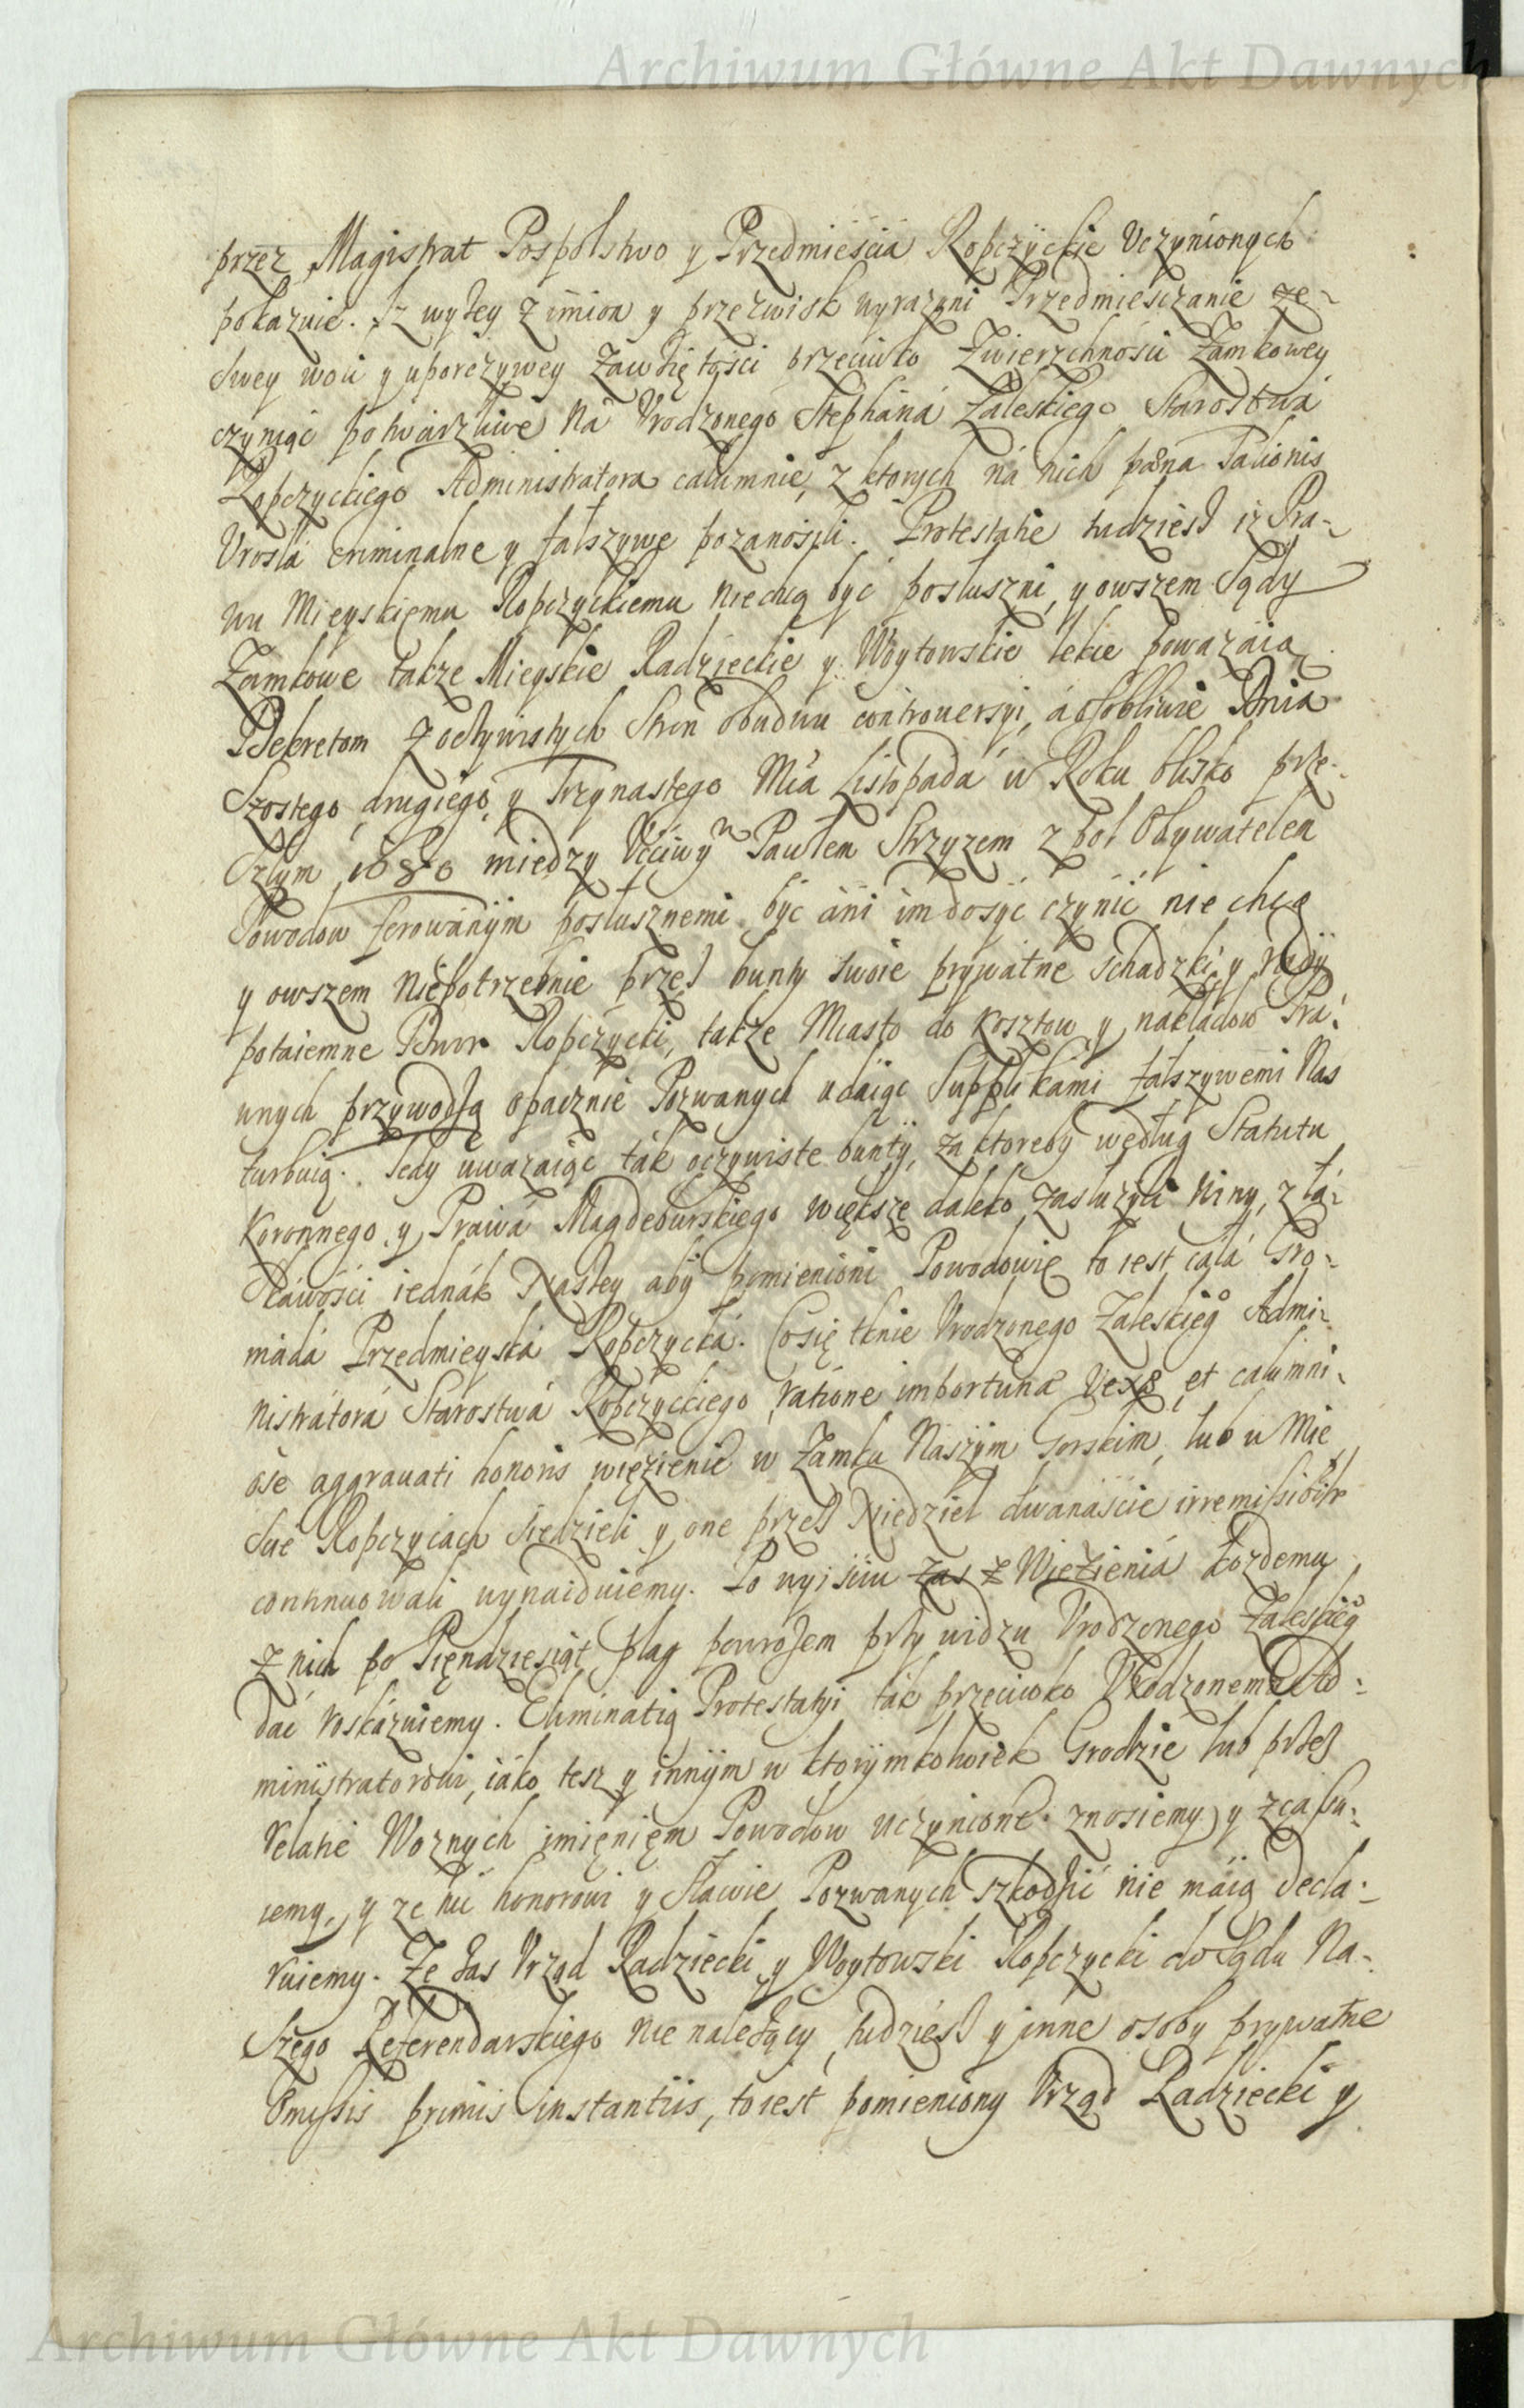 Archiwum Główne Akt Dawnych
przez Magistrat Pospolstwo y Przedmieścia Ropczyckie Vczynionych
pokazuie. Iz wyżey z imion y przezwisk wyrażeni Przedmiesczanie ze-
Swey woli y uporczywey Zawziętości przeciwko Zwierzchnosci Zamkowey
czyniąc potwarzliwe Na Vrodzonego Stephaná Zaleskiego Starostwá
Ropczyckiego Administratora calumnie, z ktorych ná nich pæna Talionis
Vrosłá criminalne y fałszywe pozanosili. Protestatie tudziesz iz Pra-
wu Mieyskiemu Ropczyckiemu niechcą być posłuszni, y owszem Sądy
Zamkowe także Mieyskie Radzieckie y Woytowskie lekce poważaią
Dekretom z oczywistych Stron obudwu controversyi, a osobliwie Dnia
Szostego, drugiego, y Trzynastego Mca Listopadá w Roku blisko prze-
Szłym 1680 między Vćciwym Pawłem Strzyzem z pol Obywatelem
Powodow ferowánym posłusznemi być áni im dosyć czynić nie chcą
y owszem niepotrzebnie przez bunty swoie prywátne schadzki, y rády
potaiemne Dwor Ropczycki, także Miasto do kosztow y nakładow Prá-
wnych przywodzą opacznie Pozwanych udáiąc Supplikami fałszywemi Nas
turbuią. Tedy uwazaiąc ták oczywiste bunty, za ktoreby według Statutu
Koronnego y Prawá Magdeburskiego większe daleko zasłużyli winy, z łá-
skáwości iednák Naszey aby pomienioni Powodowie to iest całá Gro-
mádá Przedmieyská Ropczycká. Co się tknie Vrodzonego Zaleskiego Admi-
nistrátorá Stárostwá Ropczyckiego, ratione importunæ vexæ, et calumni-
ose aggravati honoris więzienie w Zamku Naszym Gorskim, lub w Mie
ście Ropczycách siedzieli y one przez Niedziel dwanaście irremissibiliter
continuowali wynaiduiemy. Po wyisciu zas z Więzienia kozdemu
z nich po Pięndziesiąt plag powrozem przy widzu Vrodzonego Zaleskiego
dać roskázuiemy. Eliminatią Protestatyi ták przeciwko Vrodzonemu Ad-
ministratorowi, iáko tesz y innym w ktorymkolwiek Grodzie lub przez
relatie Woznych imieniem Powodow uczynione znosiemy y zcassu-
iemy, y ze nic honorowi y Sławie Pozwanych szkodzić nie máią decla-
ruiemy. Ze zas Vrząd Radziecki y Woytowski Ropczycki do Sądu Na-
szego Referendarskiego nie należący, tudziesz y inne osoby prywatne
Omissis primis instantiis, to iest pomieniony Vrząd Radziecki y
Archiwum Główne Akt Dawnych